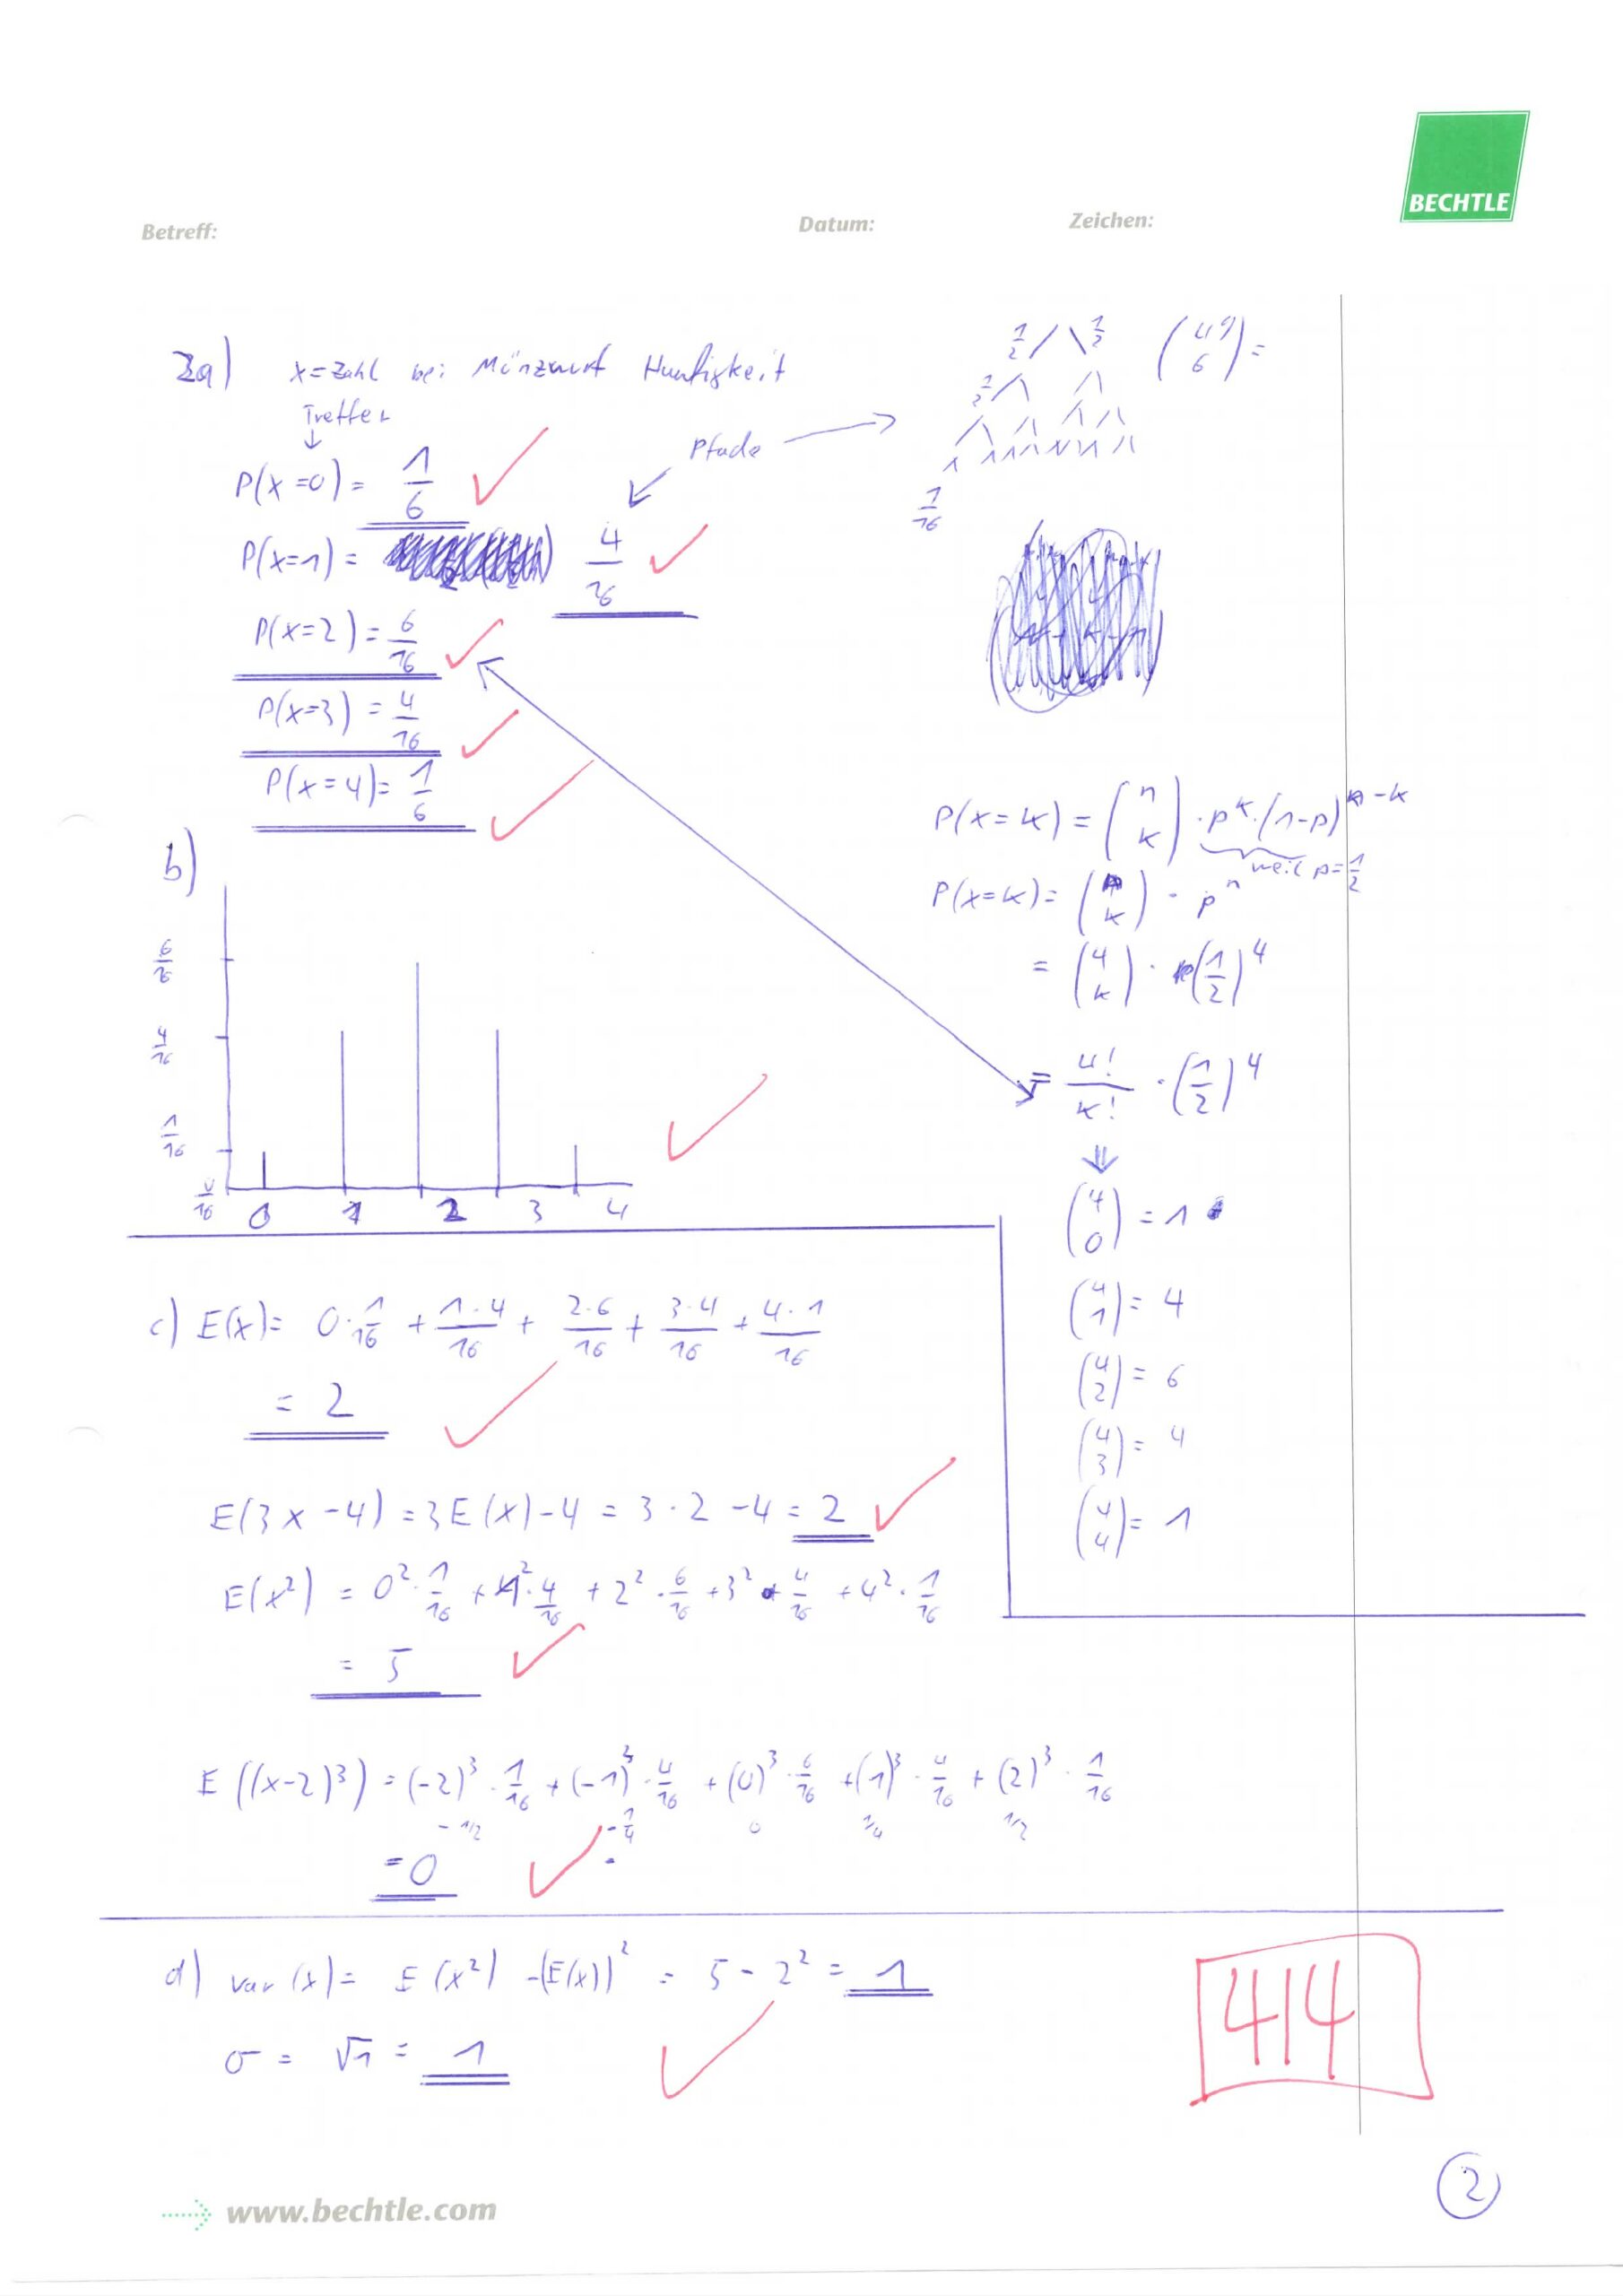 BECHTLE
Betreff: Datum: Zeichen:
2a) x = Zahl bei Münzwurf Haufigkeit
Treffer
↓
P(x=0) = 1/6
Pfade
P(x=1) = 4/16
P(x=2) = 6/16
P(x=3) = 4/16
P(x=4) = 1/6
1/2 1/2
1/2
1/16
(49 6) =
P(x=k) = (n k) · p^k · (1-p)^(n-k)
weil p = 1/2
P(x=k) = (n k) · p^n
= (4 k) · (1/2)^4
= 4!/k! · (1/2)^4
⇓
(4 0) = 1
(4 1) = 4
(4 2) = 6
(4 3) = 4
(4 4) = 1
b)
6/16
4/16
1/16
0/16
0 1 2 3 4
c) E(x) = 0·1/16 + 1·4/16 + 2·6/16 + 3·4/16 + 4·1/16
= 2
E(3x-4) = 3E(x)-4 = 3·2-4 = 2
E(x²) = 0²·1/16 + 1²·4/16 + 2²·6/16 + 3²·4/16 + 4²·1/16
= 5
E((x-2)³) = (-2)³·1/16 + (-1)³·4/16 + (0)³·6/16 + (1)³·4/16 + (2)³·1/16
-1/2 -1/4 0 1/4 1/2
= 0
d) var(x) = E(x²) - (E(x))² = 5 - 2² = 1
σ = √1 = 1
4/4
2
www.bechtle.com